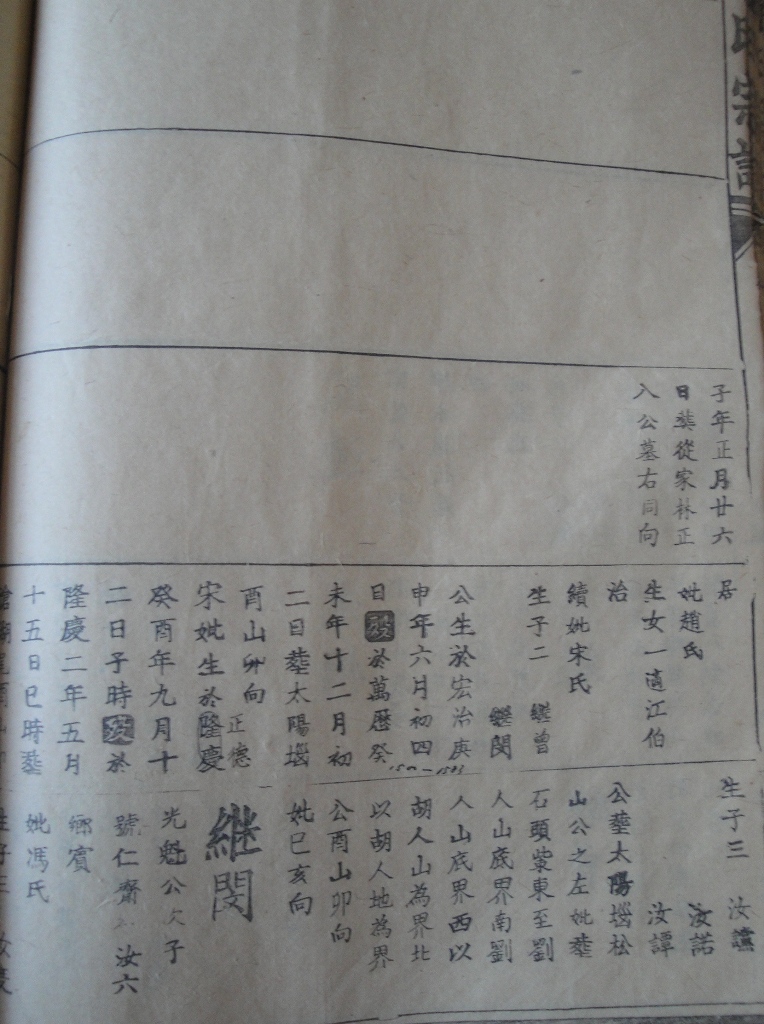 氏宗譜
子年正月廿六
日葬從家林正
入公墓右同向
居
妣趙氏
生女一適江伯
治
續妣宋氏
生子二 繼曾
繼閔
公生於宏治庚
申年六月初四
日歿於萬歷癸
未年十二月初
二日葬太陽堖
酉山卯向
宋妣生於隆慶
正德
癸酉年九月十
二日子時歿於
隆慶二年五月
十五日巳時葬
1500-1583
生子三 汝讜
汝諾
汝譚
公葬太陽堖松
山公之左妣葬
石頭塋東至劉
人山底界南劉
人山底界西以
胡人山為界北
以胡人地為界
公酉山卯向
妣巳亥向
繼閔
光魁公次子
號仁齋 汝六
鄉賓
妣馮氏
生子三